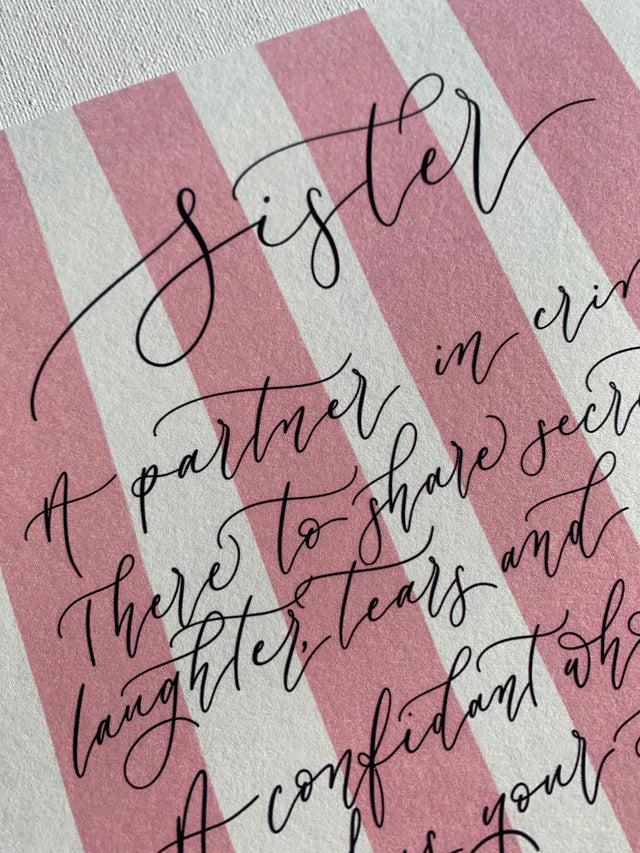 Sister
A partner in
There to share
laughter, tears and
A confidant
your